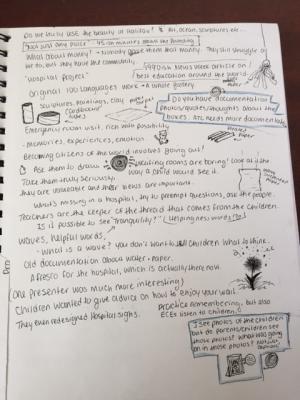 Do we truly use the beauty of Halifax? Art, ocean, sculptures etc...
"Not just any place" - 45 min minutes about the founding
What about money? → Nobody gave them that money. They still struggle as
we do, but they have the community.
1991 Dish News Week article on
best education around the world.
"Hospital Project"
Original 100 Languages work → A whole gallery
Sculptures, paintings, clay
paper
Do you have documentation?
photos/quotes/thoughts about the
boxes. ATL needs more documentation.
Emergency room visit, rich with possibility
- memories, experiences, emotion
Paper
Becoming citizens of the world involves going out!
Ask them to draw
waiting rooms are boring! Look at the
way a child would see it.
Take them truly seriously,
they are valueable and their views are important.
What's missing in a hospital, try to prempt questions, ask the people.
Teachers are the keeper of the thread that comes from the children.
Is it possible to see "tranquility?" (Helpingness words)
waves, helpful words,
- What is a wave? you don't want to tell children what to think.
Old documentation about water + paper.
A fresco for the hospital, which is actually there now.
(One presenter was much more interesting)
Children wanted to give advice on how to enjoy your wait.
They even redesigned hospital signs.
practice remembering, but also
ECEs listen to children.
I see photos of the children
but do parents/children see
those photos? What was going
on in those photos?